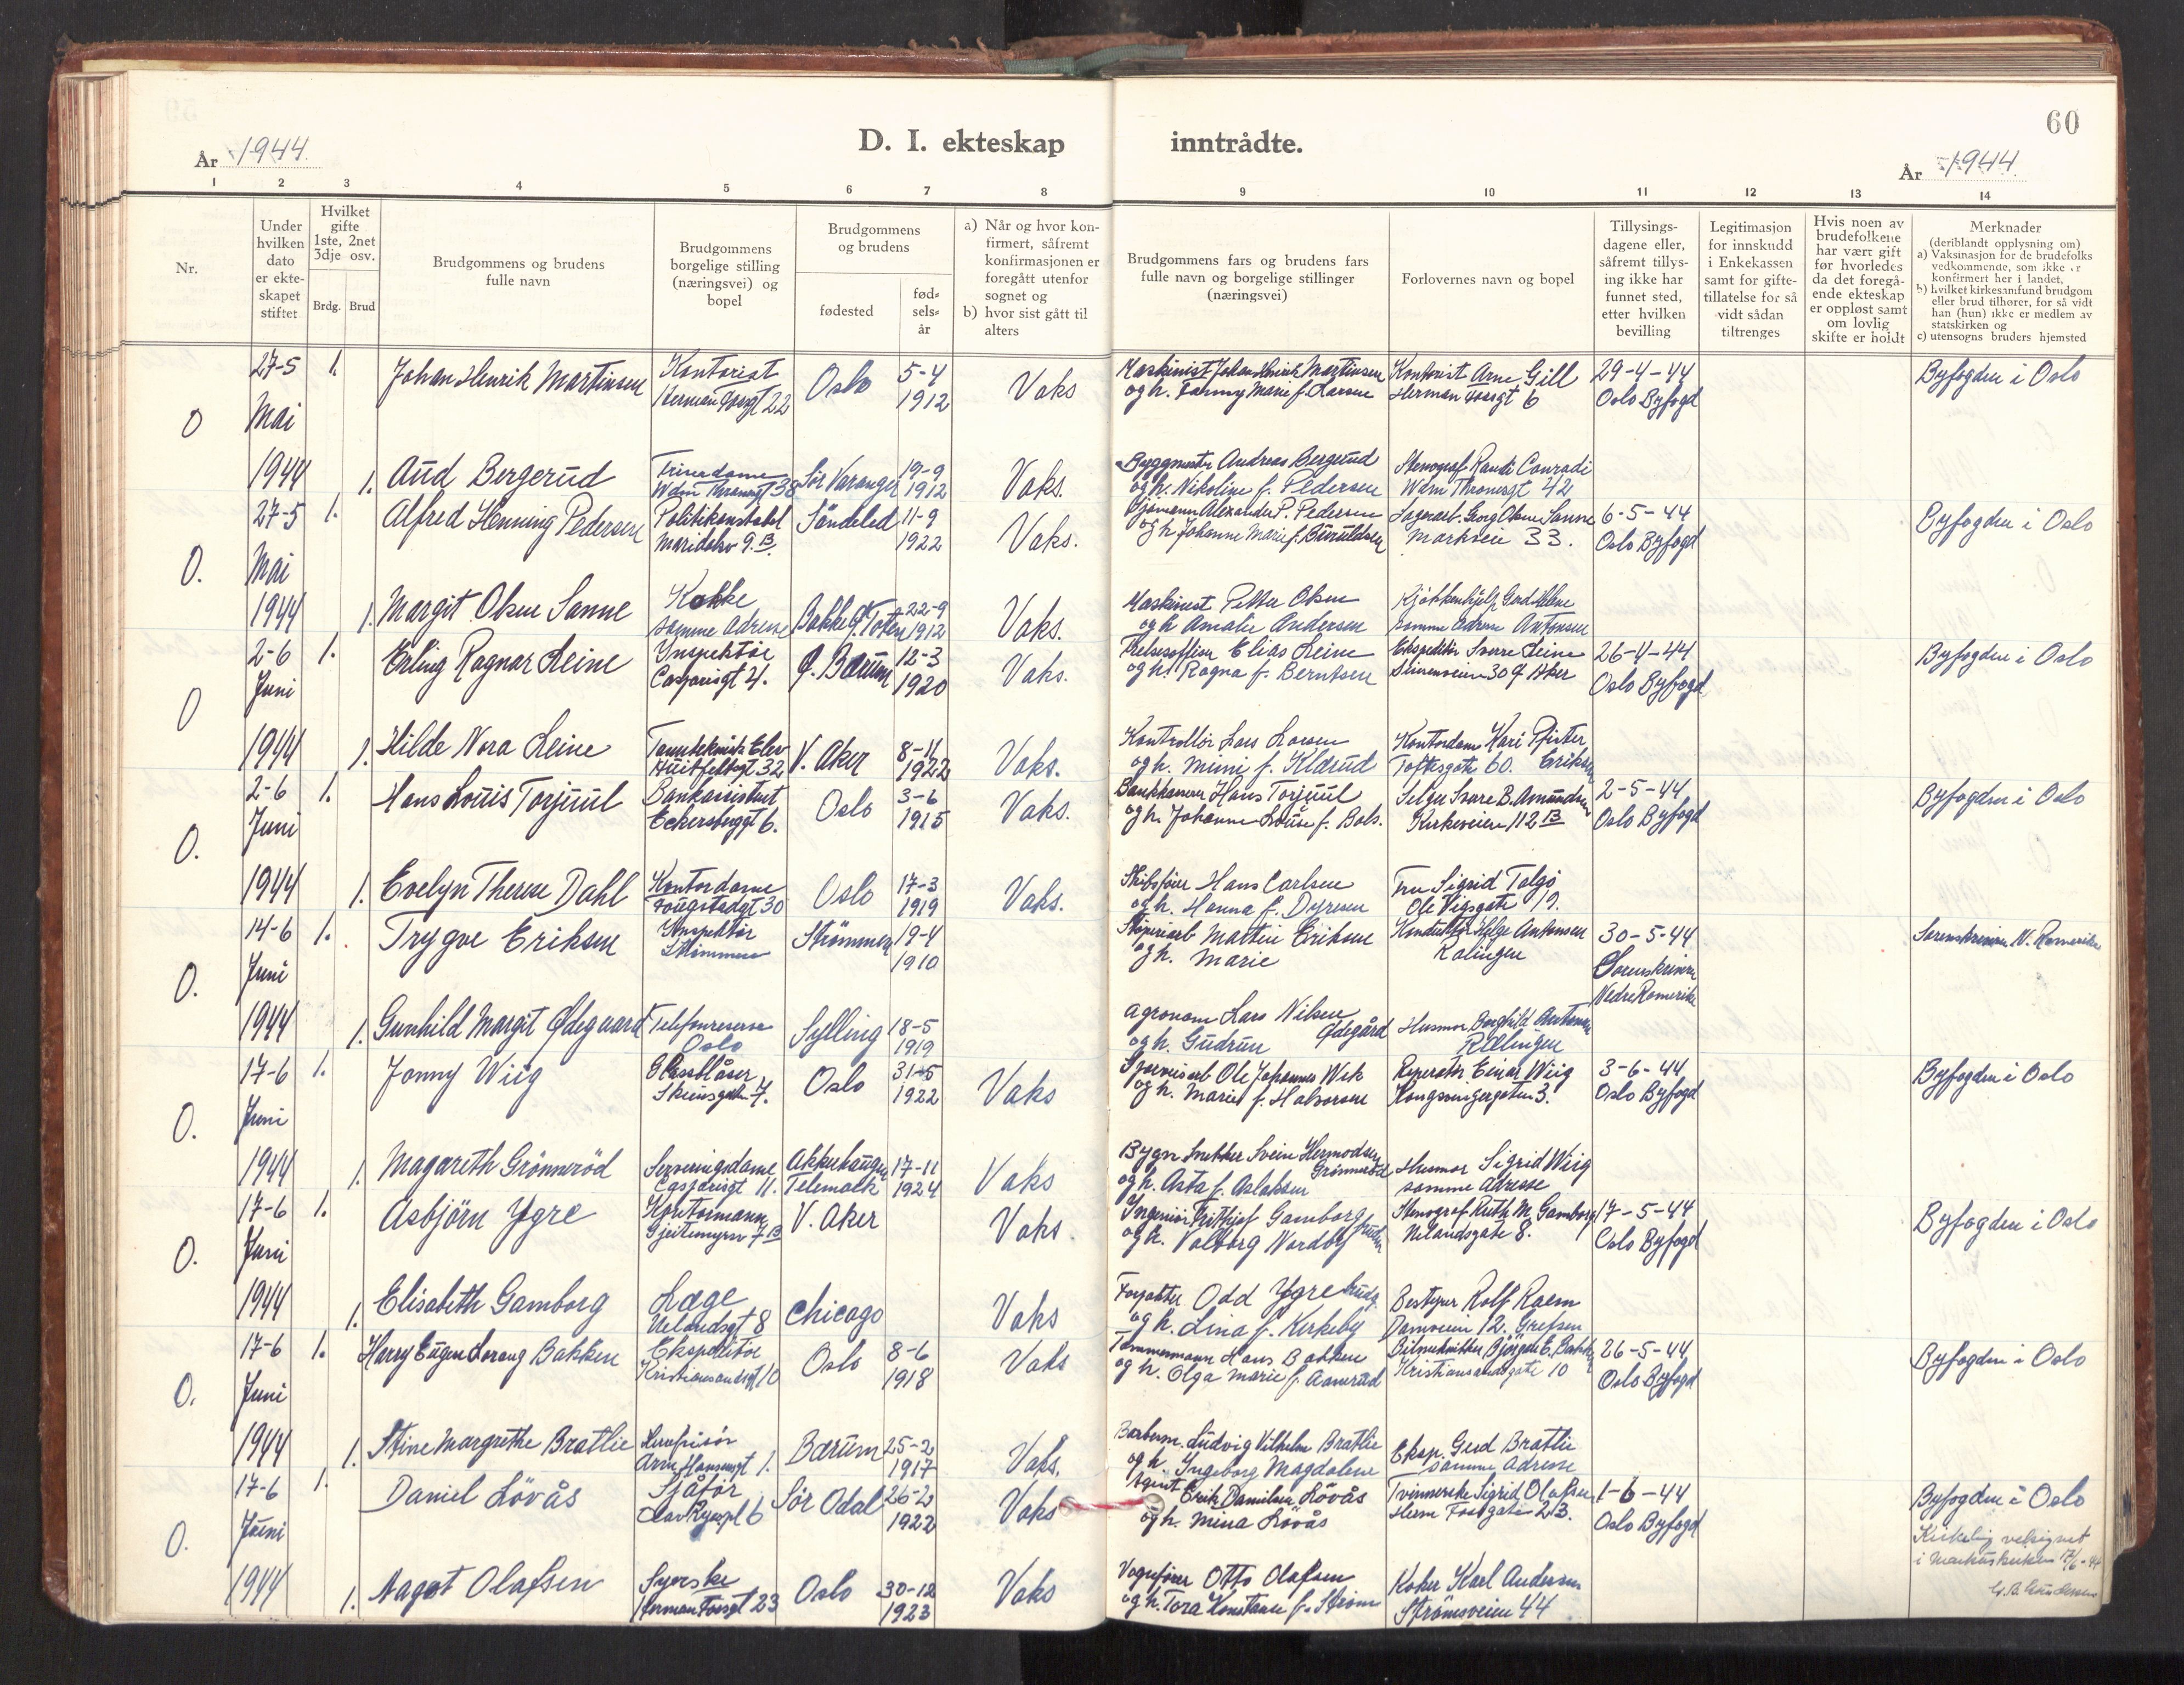 60
År 1944.
D. I. ekteskap inntrådte.
År 1944.
1 2 3 4 5 6 7 8 9 10 11 12 13 14
Nr.
Under
hvilken
dato
er ekte-
skapet
stiftet
Hvilket
gifte
1ste, 2net
3dje osv.
Brdg. Brud
Brudgommens og brudens
fulle navn
Brudgommens
borgelige stilling
(næringsvei) og
bopel
Brudgommens
og brudens
fødested
fød-
sels-
år
a) Når og hvor kon-
firmert, såfremt
konfirmasjonen er
foregått utenfor
sognet og
b) hvor sist gått til
alters
Brudgommens fars og brudens fars
fulle navn og borgelige stillinger
(næringsvei)
Forlovernes navn og bopel
Tillysings-
dagene eller,
såfremt tillys-
ing ikke har
funnet sted,
etter hvilken
bevilling
Legitimasjon
for innskudd
i Enkekassen
samt for gifte-
tillatelse for så
vidt sådan
tiltrenges
Hvis noen av
brudefolkene
har vært gift
før hvorledes
da det foregå-
ende ekteskap
er oppløst samt
om lovlig
skifte er holdt
Merknader
(deriblandt opplysning om)
a) Vaksinasjon for de brudefolks
vedkommende, som ikke er
konfirmert her i landet,
b) hvilket kirkesamfund brudgom
eller brud tilhører, for så vidt
han (hun) ikke er medlem av
statskirken og
c) utensogns bruders hjemsted
O 27-5 Mai 1944
1. Johan Henrik Martinsen Kontorist Oslo 5-4 1912 Vaks
Maskinist Johan Henrik Martinsen Kontorist Arne Gill 29-4-44 Byfogden i Oslo
og h. Fanny Marie f. Larsen Herman Fossgt 6 Oslo Byfogd
1. Aud Bergerud Sør Varanger 19-9 1912 Vaks.
Byggmester Andreas Bergerud Stenograf Randi Conradi
og h. Nikoline f. Pedersen Wdm Thranesgt 42
O. 27-5 Mai 1944
1. Alfred Henning Pedersen Politikonstabel Söndeled 11-9 1922 Vaks.
Maridalsv 9.B.
Sjömann Alexander P. Pedersen Lagerarb. Georg Olsen Sanne 6-5-44 Byfogden i Oslo
og h Johanne Marie f. Markveien 33. Oslo Byfogd
1. Margit Olsen Sanne Kokke 22-9 1912 Vaks.
samme adresse
Maskinist Petter Olsen Kjökkenhjelp Gerd Helene
og h Amalie Andersen samme adresse Antonsen
O 2-6 Juni 1944
1. Erling Ragnar Leine Inspektör Ö. Bærum 12-3 1920 Vaks.
Casparisgt 4.
Elias Leine Ekspeditör Sverre Leine 26-4-44 Byfogden i Oslo
og h. Ragna f. Berntsen 30 Ö Aker Oslo Byfogd
1. Hilde Nora Leine Tannteknisk Elev V. Aker 8-11 1922 Vaks.
Huitfeldtsgt 32
Kontrollör Lars Larsen Kontordame Kari Pfister
og h. Mimi f. Toftesgate 60. Eriksen
O. 2-6 Juni 1944
1. Hans Louis Torjuul Bankassistent Oslo 3-6 1915 Vaks.
Eckersbergsgt 6.
Hans Torjuul Selger Svare B. Amundsen 2-5-44 Byfogden i Oslo
og h. Johanne Louise f. Bals. Kirkeveien 112 B Oslo Byfogd
1. Evelyn Therese Dahl Kontordame Oslo 17-3 1919 Vaks.
Fougstadgt 30
Skibsförer Hans Carlsen Fru Sigrid Talgö
og h. Hanna f. Dyresen Ole Vigsgate 19.
O. 14-6 Juni 1944
1. Trygve Eriksen Inspektör Strömmen 19-4 1910
Strömmen
Martin Eriksen Konduktör Helge Antonsen 30-5-44 Sorenskriveren N. Romerike
og h. Marie Rælingen Sorenskriveren
Nedre Romerike
1. Gunhild Margit Ødegaard Telefonreserve Sylling 18-5 1919
Oslo
Agronom Lars Nilsen Ødegård Husmor Borghild Antonsen
og h. Gudrun Rælingen
O. 17-6 Juni 1944
1. Jonny Wiig Glassblåser Oslo 31-5 1922 Vaks
Skiensgaten 7.
Ole Johannes Wek Einar Wiig 3-6-44 Byfogden i Oslo
og h. Marie f. Halvorsen Kongsvingergaten 3. Oslo Byfogd
1. Magareth Grönneröd Serveringsdame Akkerhaugen 17-11 1924 Vaks
Casparisgt 11. Telemark
Bygn Snekker Svein Hermodsen Grönneröd Husmor Sigrid Wiig
og h. Asta f. Aslaksen samme adresse
O. 17-6 Juni 1944
1. Asbjörn Ygre Kontormann V. Aker Vaks.
Gjeitemyrsv 7 B
Ingeniör Fritthjof Gamborg Stenograf Ruth M. Gamborg 17-5-44 Byfogden i Oslo
og h. Valborg Nordby Uelandsgate 8. Oslo Byfogd
1. Elisabeth Gamborg Læge Chicago Vaks
Uelandsgt 8
Forfatter Odd Ygre Bestyrer Rolf Ræm
og h. Lina f. Kirkeby Damveien 12. Grefsen
O. 17-6 Juni 1944
1. Harry Eugen Lorang Bakken Ekspeditör Oslo 8-6 1918 Vaks
Kristiansandsgt 10
Tömmermann Hans Bakken 26-5-44 Byfogden i Oslo
og h. Olga Marie f. Aamerud Kristiansandsgate 10 Oslo Byfogd
1. Stine Margrethe Bratlie Bærum 25-2 1917 Vaks.
Barberm. Ludvig Vilhelm Bratlie Eksp. Gerd Bratlie
og h. Ingeborg Magdalene samme adresse
O. 17-6 Juni 1944
1. Daniel Lövås Sjåför Sör Odal 26-2 1922 Vaks
Olav Ryespl 6
Agent Erik Danielsen Lövås Tvinnerske Sigrid Olafsen 1-6-44 Byfogden i Oslo
og h. Mina Lövås Herm Fossgate 23. Oslo Byfogd
Kirkelig velsignet
i Markuskirken 17/6-44
1. Nagot Olafsen Syerske Oslo 30-12 1923 Vaks
Herman Fossgt 23
Vognförer Otto Olafsen Koker Karl Andersen
og h. Tora Konstanse f. Ström Strömsveien 44